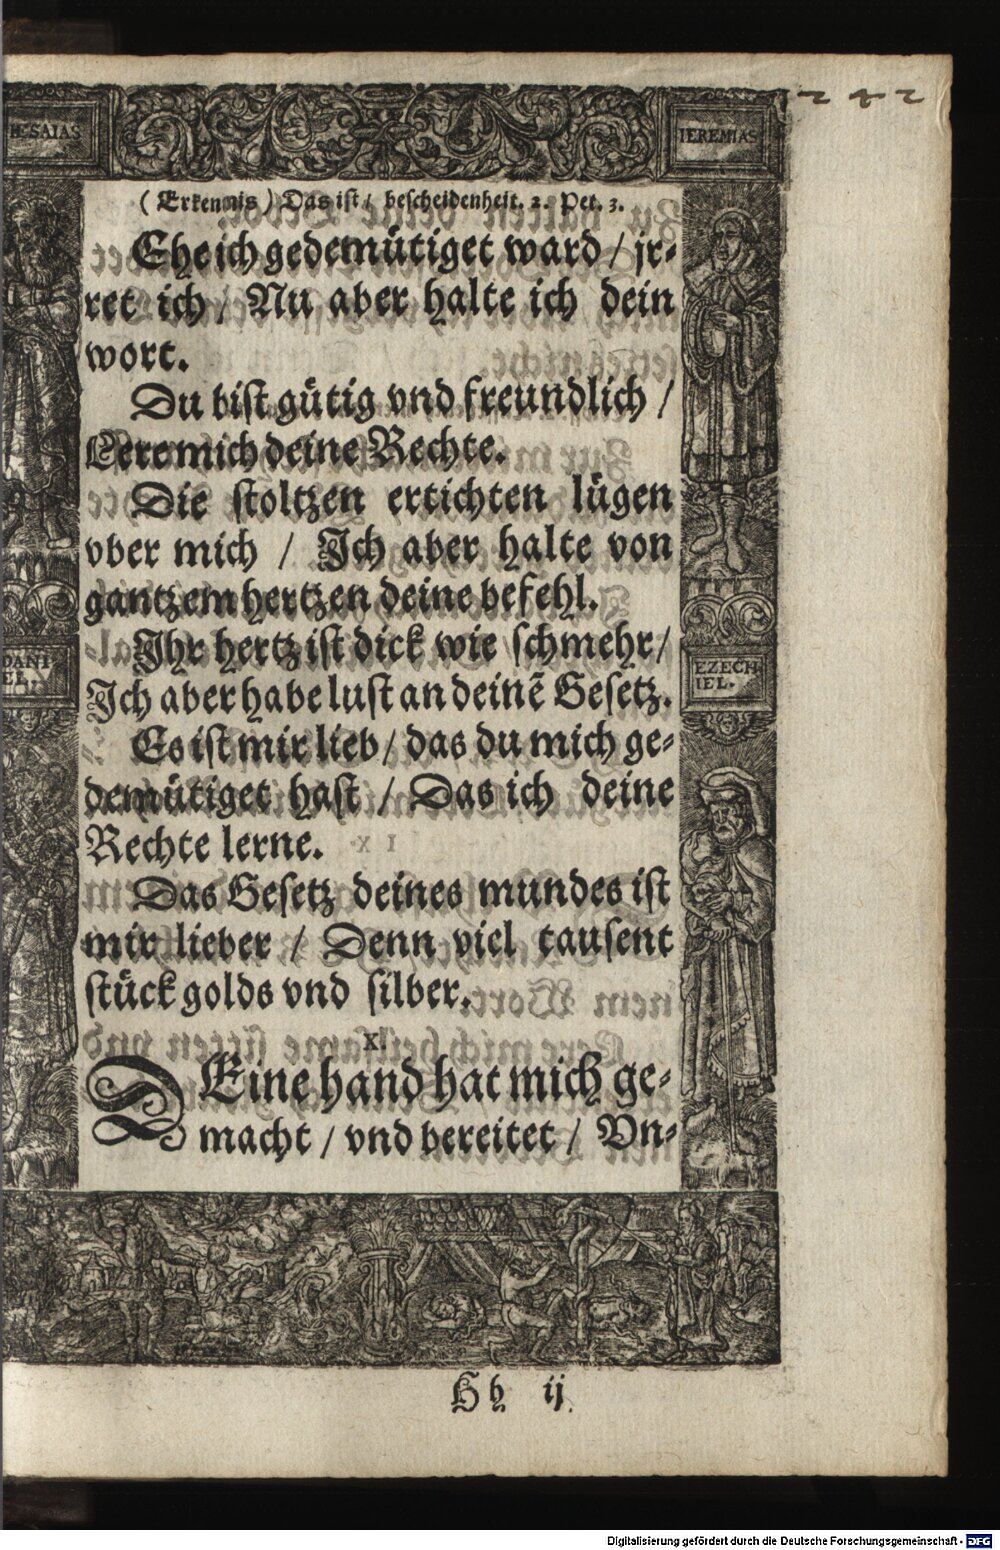 242
HESAIAS
IEREMIAS
(Erkentnis) Das ist/ bescheidenheit. 2. Pet. 3.
Ehe ich gedemütiget ward / jr⸗
ret ich / Nu aber halte ich dein
wort.
Du bist gütig vnd freundlich /
Lere mich deine Rechte.
Die stoltzen ertichten lügen
vber mich / Ich aber halte von
gantzem hertzen deine befehl.
Ihr hertz ist dick wie schmehr/
Ich aber habe lust an deinē Gesetz.
Es ist mir lieb / das du mich ge⸗
demütiget hast / Das ich deine
Rechte lerne.
Das Gesetz deines mundes ist
mir lieber / Denn viel tausent
stück golds vnd silber.
X.
DEine hand hat mich ge⸗
macht / vnd bereitet / Vn⸗
DANI
EL.
EZECH
IEL.
Hh ij
Digitalisierung gefördert durch die Deutsche Forschungsgemeinschaft - DFG